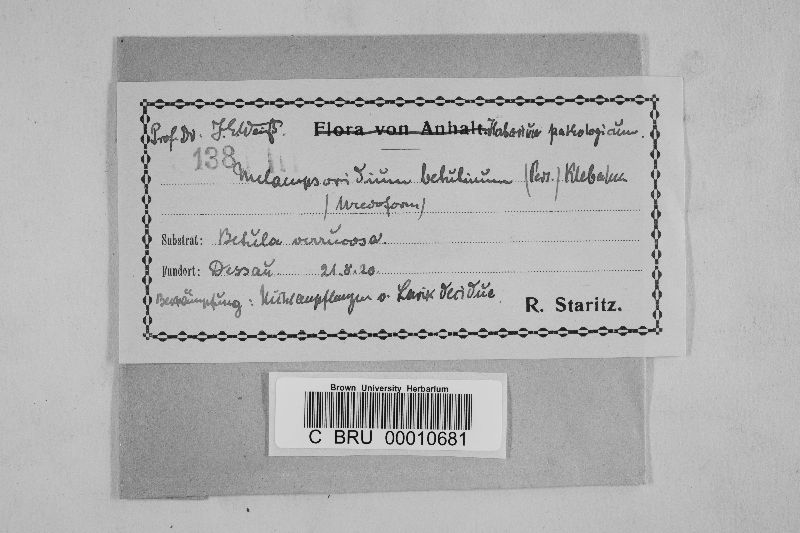 Prof. Dr. J. E. Weiß. Flora von Anhalt. Herbarium pathologicum.
138
Melampsoridium betulinum (Pers.) Klebahn
(Uredoform)
Substrat: Betula verrucosa.
Fundort: Dessau 21.8.20.
Bekämpfung: Nichtanpflanzen v. Larix decidua.
R. Staritz.
Brown University Herbarium
C BRU 00010681